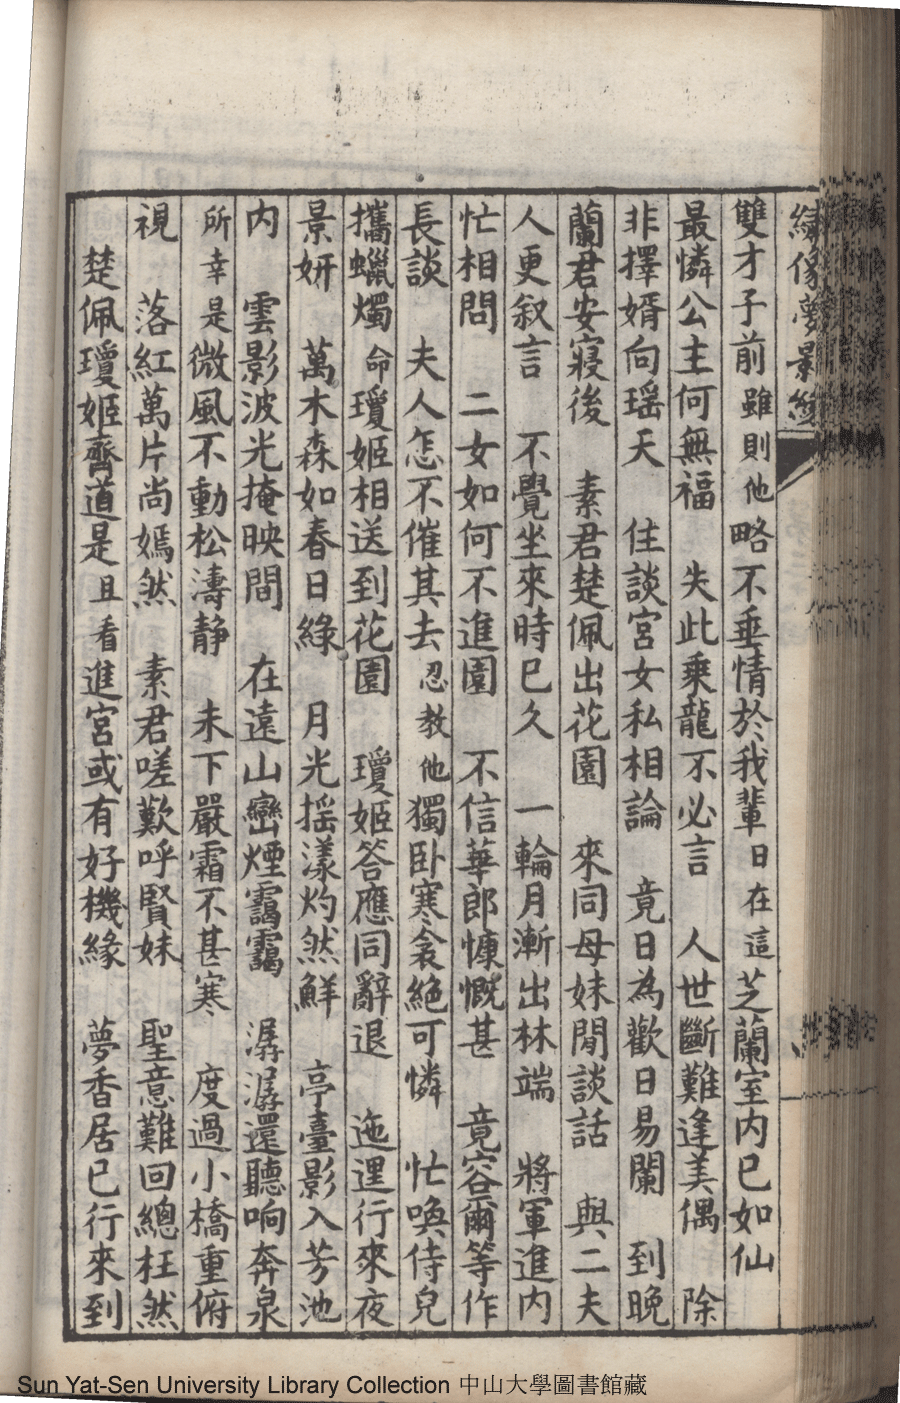 繡像夢影緣
雙才子前雖則他略不垂情於我輩日在這芝蘭室内已如仙
最憐公主何無福　失此乘龍不必言　人世斷難逢美偶　除
非擇婿向瑶天　住談宮女私相論　竟日為歡日易闌　到晚
蘭君安寢後　素君楚佩出花園　來同母妹閒談話　與二夫
人更叙言　不覺坐來時已久　一輪月漸出林端　將軍進内
忙相問　二女如何不進園　不信華郎慷慨甚　竟容爾等作
長談　夫人怎不催其去忍教他獨卧寒衾絕可憐　忙喚侍兒
攜蠟燭命瓊姬相送到花園　瓊姬答應同辭退　迤逕行來夜
景妍　萬木森如春日綠　月光摇漾灼然鮮　亭臺影入芳池
内　雲影波光掩映間　在遠山巒煙靄靄　潺潺還聽响奔泉
所幸是微風不動松濤静　未下嚴霜不甚寒　度過小橋重俯
視　落紅萬片尚嫣然　素君嗟歎呼賢妹　聖意難回總枉然
楚佩瓊姬齊道是且看進宮或有好機緣　夢香居已行來到
Sun Yat-Sen University Library Collection 中山大學圖書館藏